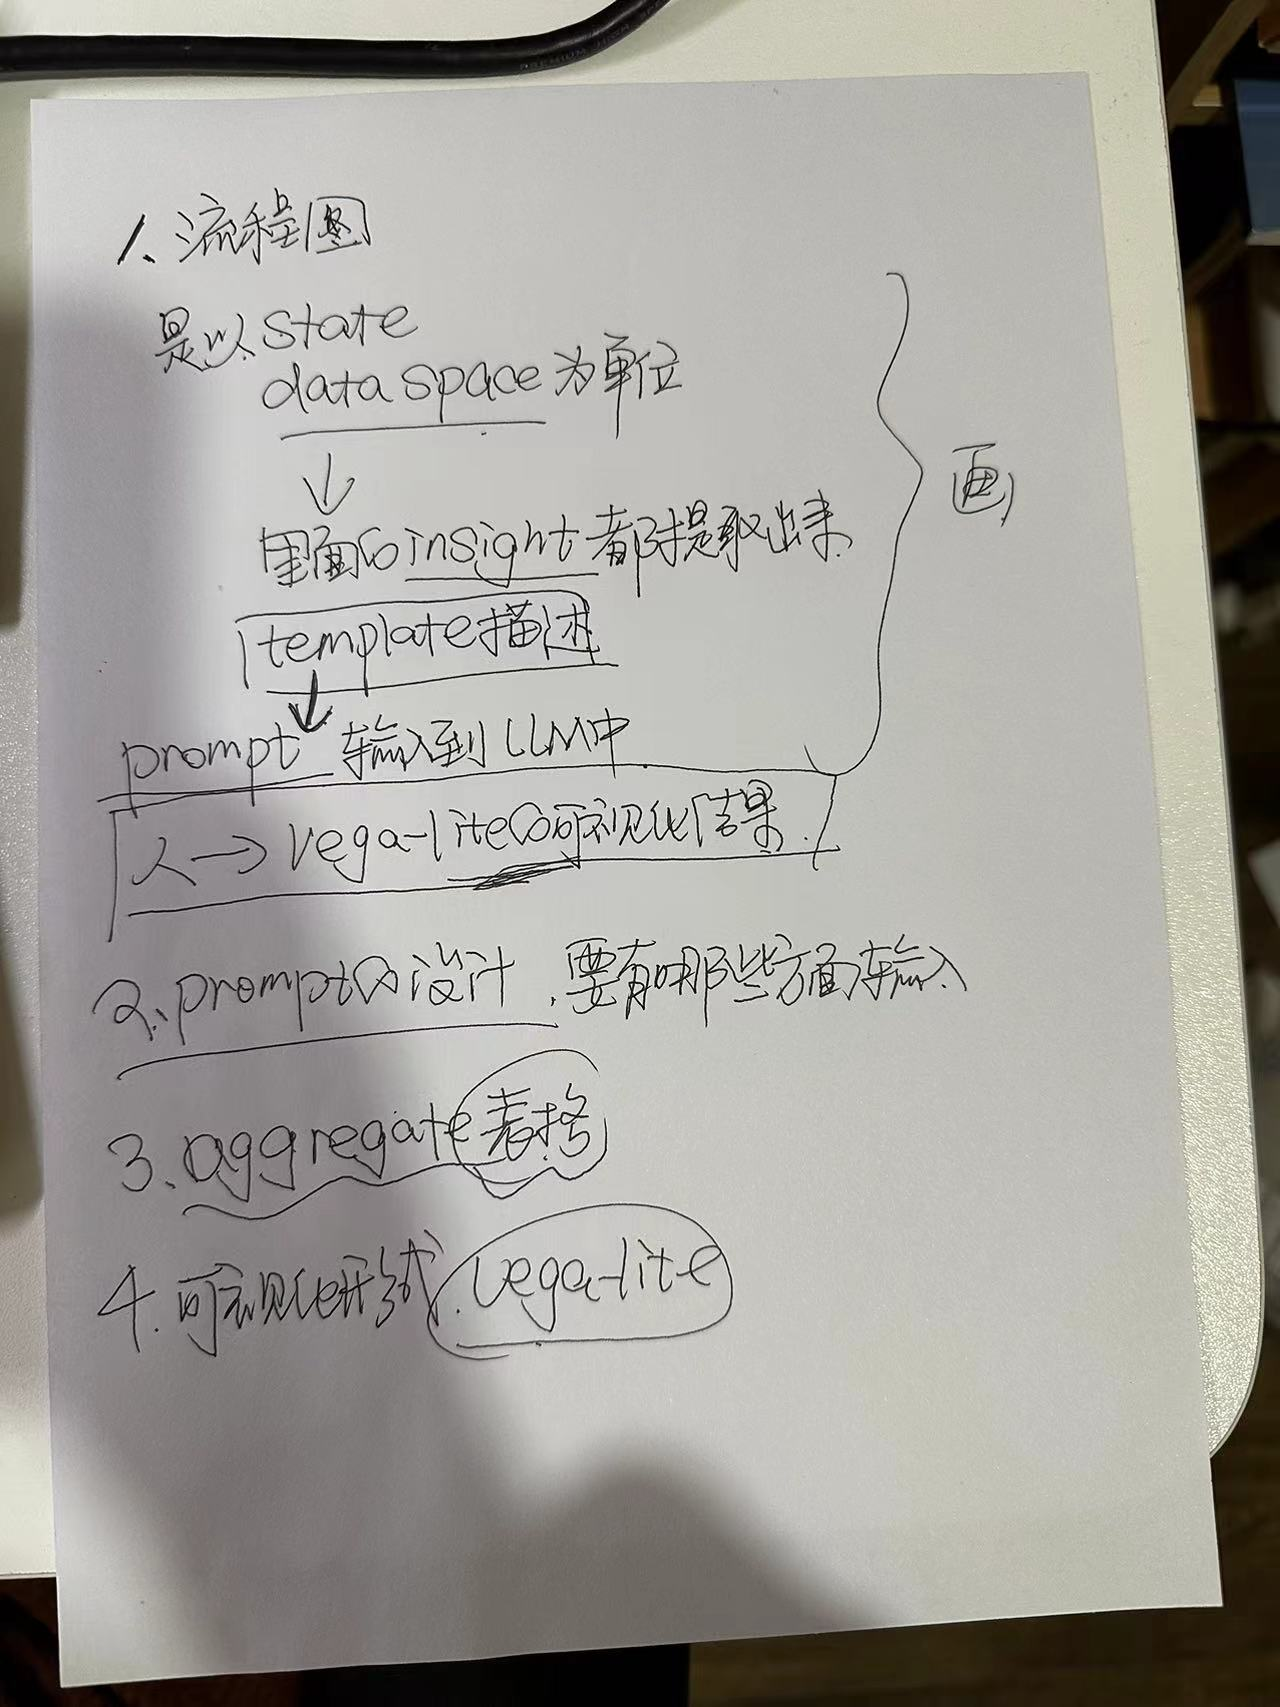 1、流程图
是以 state
data space 为单位
↓
里面的 insight 都提取出来
template描述
↓
prompt 输入到 LLM中
人→ vega-lite的可视化结果.
画
2、prompt的设计.要有哪些方面输入
3.aggregate表格
4.可视化形式.vega-lite